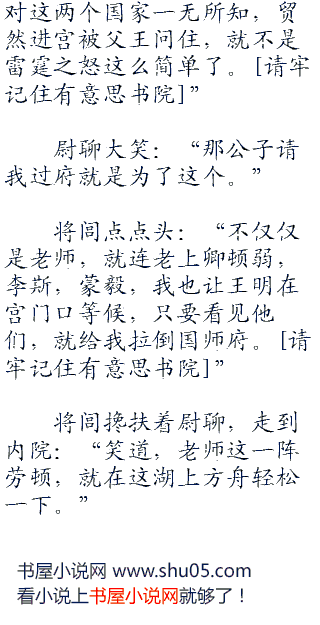 对这两个国家一无所知，贸
然进宫被父王问住，就不是
雷霆之怒这么简单了。[请牢
记住有意思书院]”
尉聊大笑：“那公子请
我过府就是为了这个。”
将闾点点头：“不仅仅
是老师，就连老上卿顿弱，
李斯，蒙毅，我也让王明在
宫门口等候，只要看见他
们，就给我拉倒国师府。[请
牢记住有意思书院]”
将闾搀扶着尉聊，走到
内院：“笑道，老师这一阵
劳顿，就在这湖上方舟轻松
一下。”
书屋小说网 www.shu05.com
看小说上书屋小说网就够了！